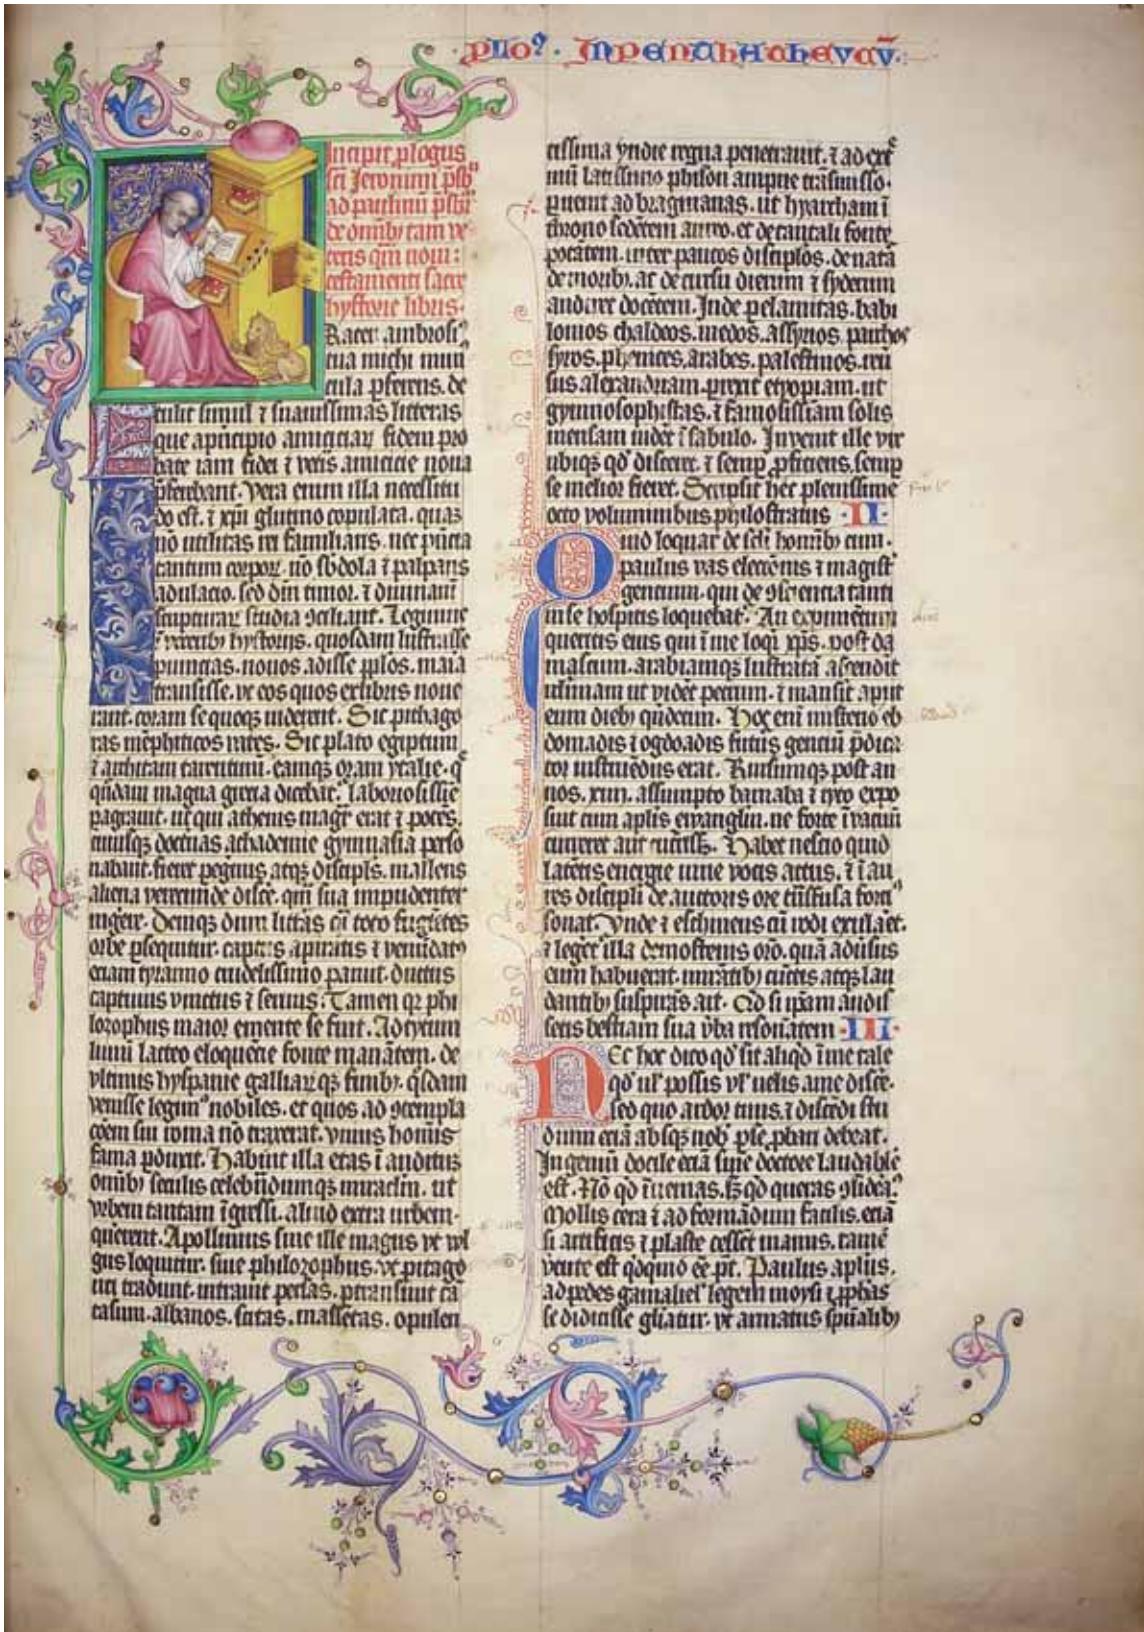 plo⁹. In penthatheucū.
Incipit plogus
sci Jeronimi psb
ad paulinū psbm
de omīb tam ve
teris qm noui
testamenti sacre
hystorie libris.
Rater ambrosi⁹
tua michi mun
cula pferens. de
tulit simul ⁊ suauissimas litteras
que apncipio amiciciaꝝ fidem pro
bate iam fidei ⁊ veteris amicicie noua
pferebant. Vera enim illa necessitu
do est. ⁊ xpi glutino copulata. quaꝫ
nō utilitas rei familiaris. nec pūcia
tantum corpoꝝ. nō sbdola ⁊ palpans
adulacio. sed dīn timor. ⁊ diuinaꝝ
scripturaꝝ studia ꝯciliant. Legimus
ī veterib hystoriis. quosdam lustrasse
puincias. nouos adisse pplos. maria
transisse. vt eos quos exlibris noue
rant. coram se quoqꝫ uiderent. Sic pithago
ras mēphiticos vates. Sic plato egiptum
⁊ architam tarentinū. eamqꝫ oram ytalie. q̄
qūdam magna grecia dicebat. laboriosissīe
pagrauit. ut qui athenis magr̄ erat ⁊ potēs.
cuiusqꝫ doctnas achademie gymnasia perso
nabant. fieret pegrinus atqꝫ discipls. mallens
aliena verecunde disce. qm̄ sua impudenter
ingere. Deniqꝫ dum littas cū toto fugiētes
orbe psequitur. captus apiratis ⁊ venūdat⁹
eciam tyranno crudelissimo paruit. ductus
captiuus vinctus ⁊ seruus. Tamen qꝛ phi
losophus maior emente se fuit. Ad tytum
liuiū lacteo eloquēcie fonte manātem. de
vltimis hyspanie galliaꝝ qꝫ finib. qsdam
venisse legim⁹ nobiles. et quos ad ꝯtempla
cōem sui roma nō traxerat. vnius homīs
fama pduxit. Habuit illa etas īauditū
omīb seculis celebrādumqꝫ miraclm. ut
vrbem tantam īgressi. aliud extra urbem
quererent. Apollinius siue ille magus vt vul
gus loquitur. siue philozophus. vt pitago
rici tradunt. intrauit persas. ptransiuit cā
casum. albanos. scitas. massetas. opulen
tissima yndie regna penetrauit. ⁊ ad extre
mū latissimo phison ampne trāsmisso.
puenit ad bragmanas. ut hyarcham ī
throno sedētem aureo. et de tantali fonte
potātem. inter paucos disciplos. de natā
de morib. ac de cursu dierum ⁊ syderum
audiret docētem. Inde p elamitas. babi
lonios chaldeos. medos. assyrios. parthos
syros. phenices. arabes. palestinos. reū
sus alexandriam. prexit ethyopiam. ut
gymnosophistas. ⁊ famosissiam solis
mensam uidēt ī sabulo. Inuenit ille vir
ubiqꝫ qd disceret. ⁊ semp pficiens. semp
se melior fieret. Scripsit hec plenissime
octo voluminibus philostratus .II.
uid loquar de scli homīb cum.
paulus vas eleccōnis ⁊ magist
gencium. qui de ꝯsciencia tanti
in se hospitis loquebat. An expimētum
queritis eius qui ī me loqr xpc. post da
mascum. arabiamqꝫ lustratā ascendit
iherosolimam ut vidēt petrum. ⁊ mansit aput
eum dieb quīdecim. Hoc enī misterio eb
domadis ⁊ ogdoadis futus genciū pdica
tor instruēdus erat. Rursumqꝫ post an
nos. xiiii. assumpto barnaba ⁊ tyto expo
suit cum aplis ewanglium. ne forte ī vacuū
curreret aut cucurrissꝫ. Habet nescio quid
latētis energie uiue vocis actus. ⁊ ī au
res discipli de auctoris ore trāsfusa forci⁹
sonat. Vnde ⁊ eschineus cū rodi exularet.
⁊ legeret illa demostenis orō. quā adūsus
eum habuerat. mirātib cūctis atqꝫ lau
dantib suspirās ait. Qd si ipam audis
setis bestiam sua vba resonātem .III.
Ec hoc dico qd sit aliqd ī me tale
qd ul possis vl uelis a me disce.
sed quo ardor tuus. ⁊ discēdi stu
dium eciā absqꝫ nob p se pbari debeat.
Ingenium docile eciā sine doctore laudabile
est. Nō qd inuenias. sꝫ qd queras ꝯsideram⁹
Mollis cera ⁊ ad formādum facilis. eciā
si artificis ⁊ plaste cessēt manus. tamē
vtute est qdquid eē pt. Paulus aplius.
ad pedes gamaliel legem moysi ⁊ pphas
se didicisse gliatur. vt armatus spualib